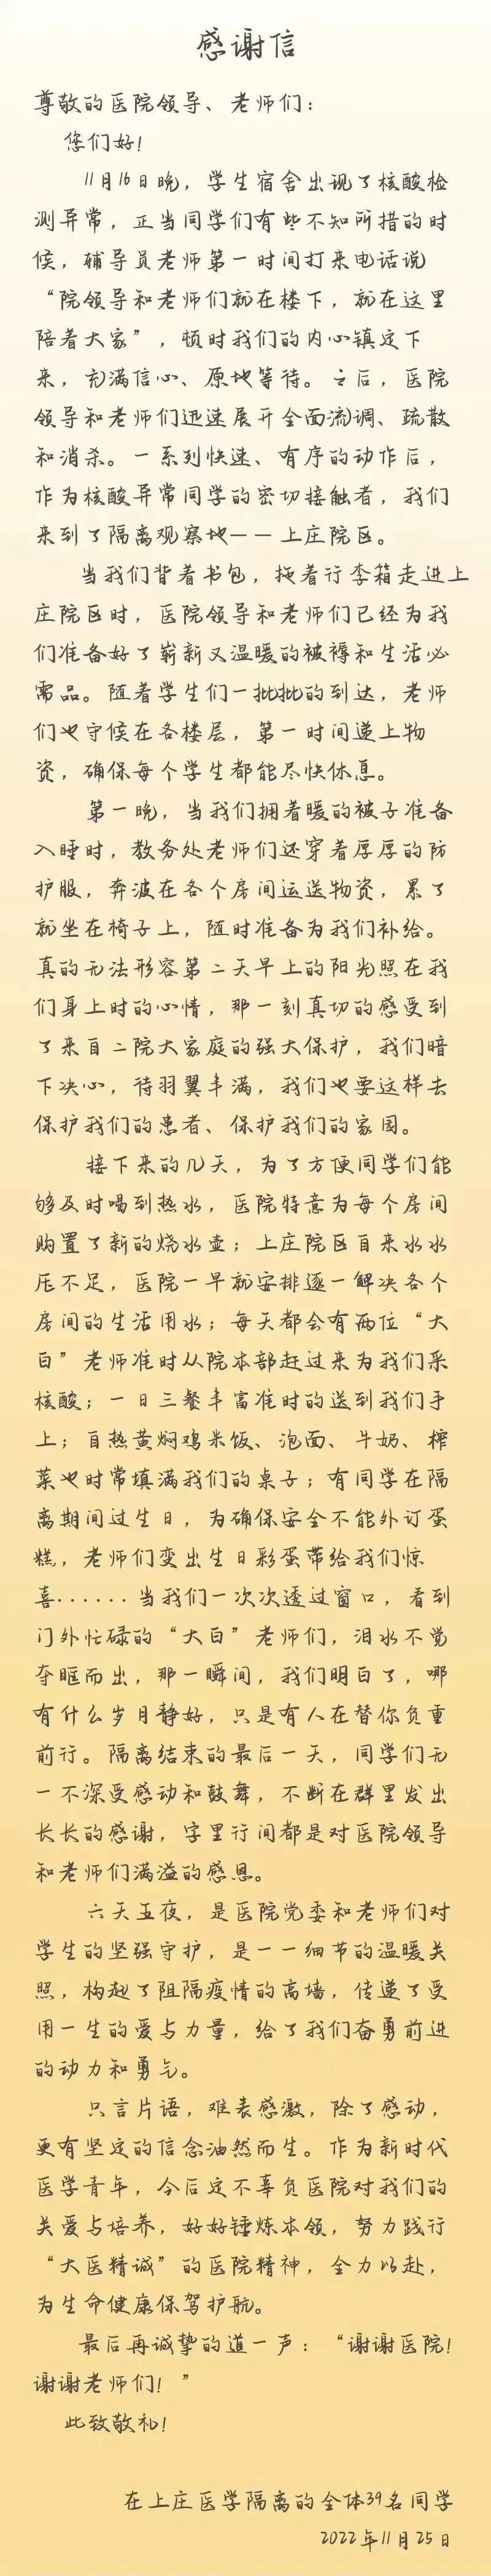 感谢信
尊敬的医院领导、老师们：
您们好！
11月16日晚，学生宿舍出现了核酸检
测异常，正当同学们有些不知所措的时
候，辅导员老师第一时间打来电话说
“院领导和老师们就在楼下，就在这里
陪着大家”，顿时我们的内心镇定下
来，充满信心、原地等待。之后，医院
领导和老师们迅速展开全面流调、疏散
和消杀。一系列快速、有序的动作后，
作为核酸异常同学的密切接触者，我们
来到了隔离观察地——上庄院区。
当我们背着书包，拖着行李箱走进上
庄院区时，医院领导和老师们已经为我
们准备好了崭新又温暖的被褥和生活必
需品。随着学生们一批批的到达，老师
们也守候在各楼层，第一时间递上物
资，确保每个学生都能尽快休息。
第一晚，当我们拥着暖的被子准备
入睡时，教务处老师们还穿着厚厚的防
护服，奔波在各个房间运送物资，累了
就坐在椅子上，随时准备为我们补给。
真的无法形容第二天早上的阳光照在我
们身上时的心情，那一刻真切的感受到
了来自二院大家庭的强大保护，我们暗
下决心，待羽翼丰满，我们也要这样去
保护我们的患者、保护我们的家园。
接下来的几天，为了方便同学们能
够及时喝到热水，医院特意为每个房间
购置了新的烧水壶；上庄院区自来水水
压不足，医院一早就安排逐一解决各个
房间的生活用水；每天都会有两位“大
白”老师准时从院本部赶过来为我们采
核酸；一日三餐丰富准时的送到我们手
上；自热黄焖鸡米饭、泡面、牛奶、榨
菜也时常填满我们的桌子；有同学在隔
离期间过生日，为确保安全不能外订蛋
糕，老师们变出生日彩蛋带给我们惊
喜......当我们一次次透过窗口，看到
门外忙碌的“大白”老师们，泪水不觉
夺眶而出，那一瞬间，我们明白了，哪
有什么岁月静好，只是有人在替你负重
前行。隔离结束的最后一天，同学们无
一不深受感动和鼓舞，不断在群里发出
长长的感谢，字里行间都是对医院领导
和老师们满溢的感恩。
六天五夜，是医院党委和老师们对
学生的坚强守护，是一一细节的温暖关
照，构起了阻隔疫情的高墙，传递了受
用一生的爱与力量，给了我们奋勇前进
的动力和勇气。
只言片语，难表感激，除了感动，
更有坚定的信念油然而生。作为新时代
医学青年，今后定不辜负医院对我们的
关爱与培养，好好锤炼本领，努力践行
“大医精诚”的医院精神，全力以赴，
为生命健康保驾护航。
最后再诚挚的道一声：“谢谢医院！
谢谢老师们！”
此致敬礼！
在上庄医学隔离的全体39名同学
2022年11月25日